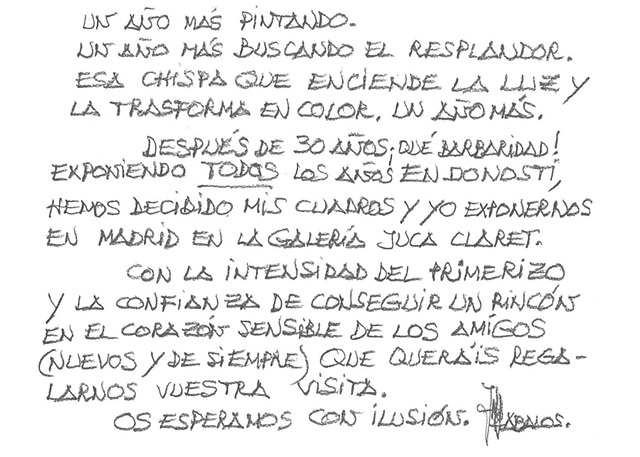 UN AÑO MÁS PINTANDO.
UN AÑO MÁS BUSCANDO EL RESPLANDOR.
ESA CHISPA QUE ENCIENDE LA LUZ Y
LA TRASFORMA EN COLOR. UN AÑO MÁS.
DESPUÉS DE 30 AÑOS ¡QUÉ BARBARIDAD!
EXPONIENDO TODOS LOS AÑOS EN DONOSTI,
HEMOS DECIDIDO MIS CUADROS Y YO EXPONERNOS
EN MADRID EN LA GALERÍA JUCA CLARET.
CON LA INTENSIDAD DEL PRIMERIZO
Y LA CONFIANZA DE CONSEGUIR UN RINCÓN
EN EL CORAZÓN SENSIBLE DE LOS AMIGOS
(NUEVOS Y DE SIEMPRE) QUE QUERÁIS REGA-
LARNOS VUESTRA VISITA.
OS ESPERAMOS CON ILUSIÓN. ÁBALOS.